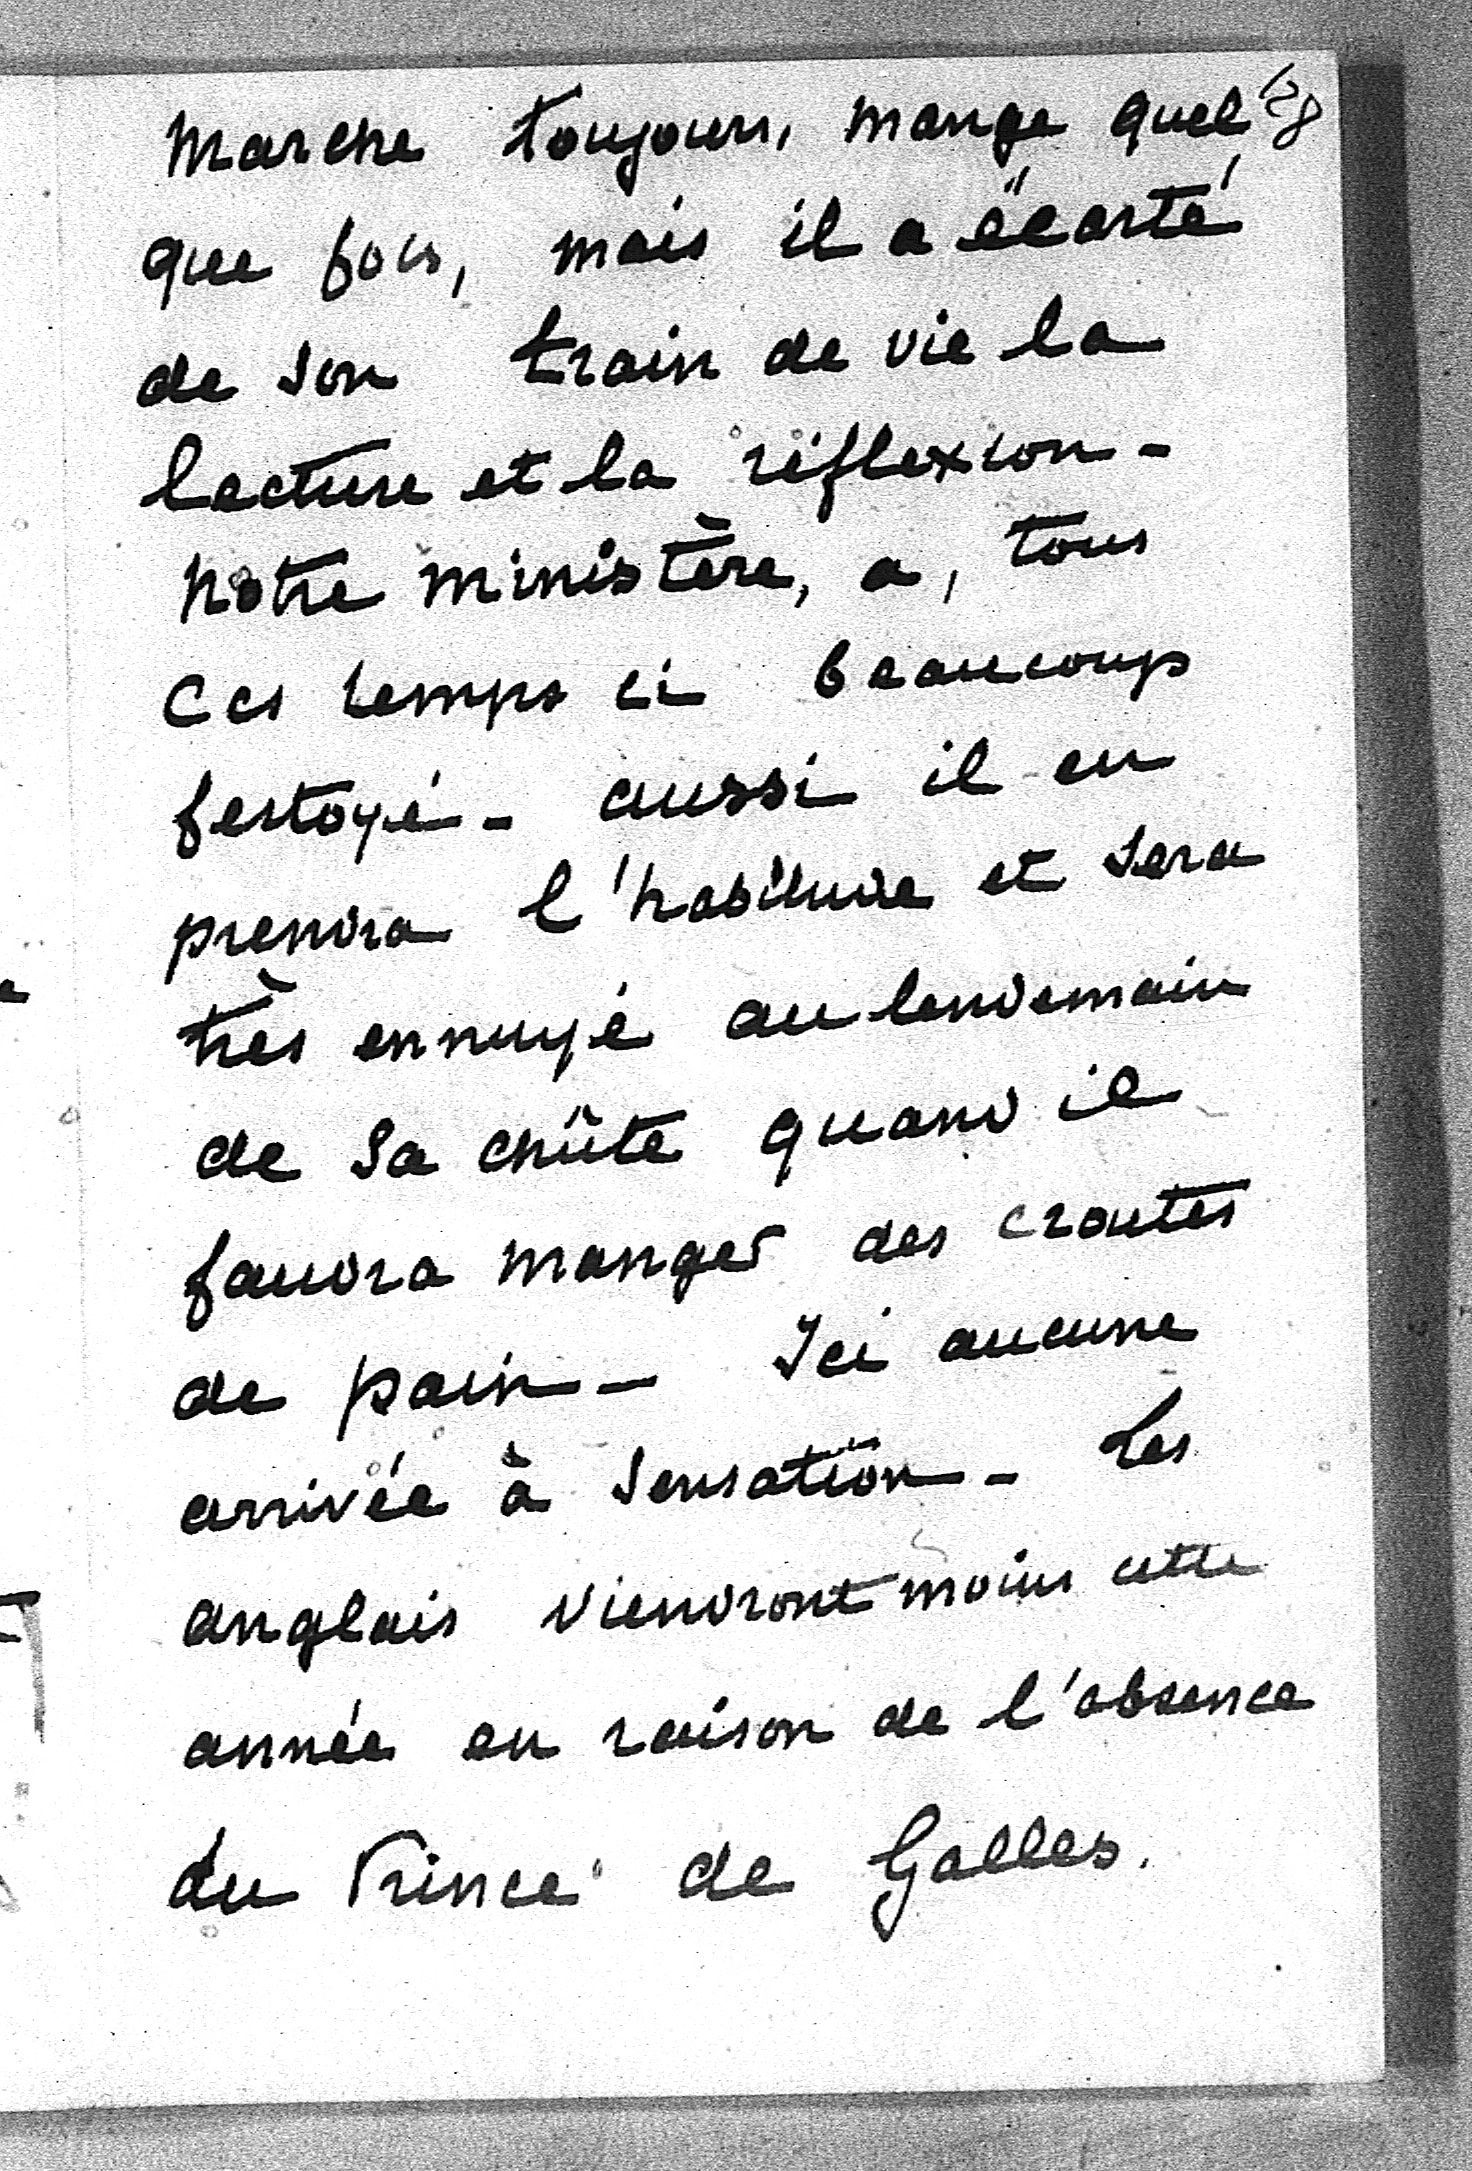 marche toujours, mange quel
que fois, mais il a écarté
de son train de vie la
lecture et la réflexion -
notre ministère, a, tous
ces temps ci beaucoup
festoyé - aussi il en
prendra l'habitude et sera
très ennuyé au lendemain
de sa chûte quand il
faudra manger des croutes
de pain - Ici aucune
arrivée à sensation - Les
anglais viendront moins cette
année en raison de l'absence
du Prince de Galles.